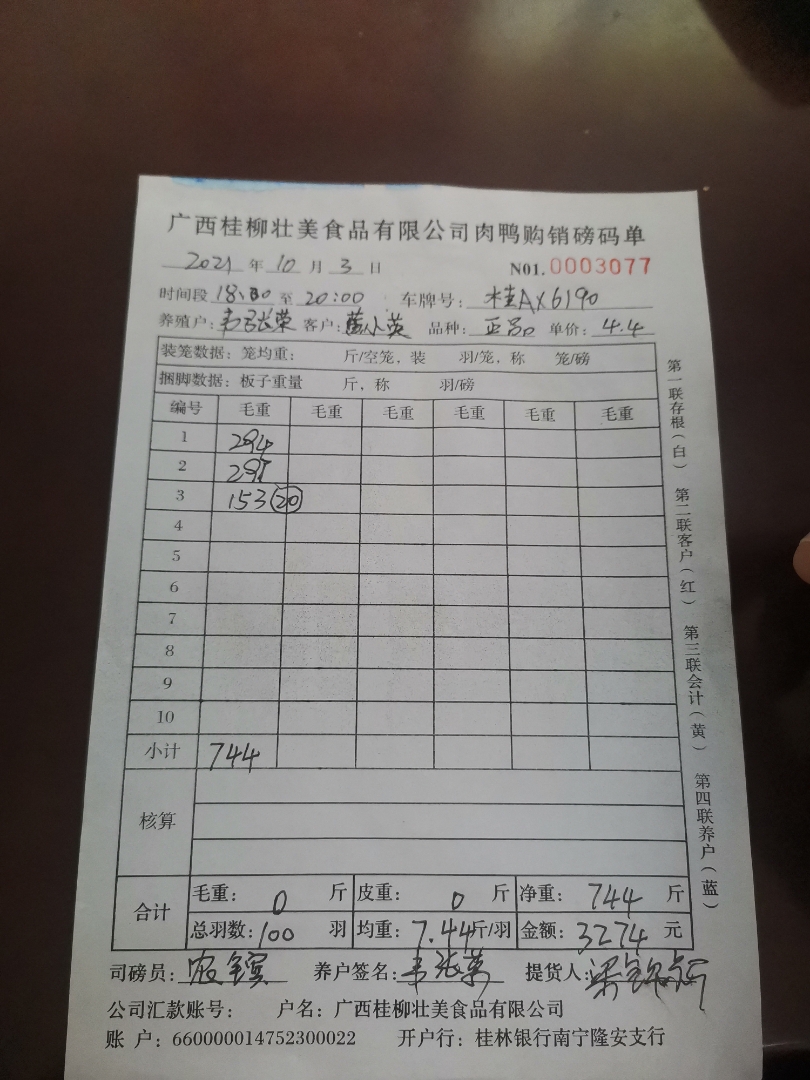 广西桂柳壮美食品有限公司肉鸭购销磅码单
2021 年 10 月 3 日 N01. 0003077
时间段 18:30 至 20:00 车牌号: 桂AX6190
养殖户: 韦 张荣 客户: 黄小英 品种: 正品 单价: 4.4
装笼数据: 笼均重: 斤/空笼, 装 羽/笼, 称 笼/磅
捆脚数据: 板子重量 斤, 称 羽/磅
编号 毛重 毛重 毛重 毛重 毛重 毛重
1 294
2 297
3 153 20
4
5
6
7
8
9
10
小计 744
核算
合计
毛重: 0 斤 皮重: 0 斤 净重: 744 斤
总羽数: 100 羽 均重: 7.44 斤/羽 金额: 3274 元
司磅员: 农 养户签名: 韦张荣 提货人: 梁
公司汇款账号: 户名: 广西桂柳壮美食品有限公司
账 户: 660000014752300022 开户行: 桂林银行南宁隆安支行
第一联存根(白) 第二联客户(红) 第三联会计(黄) 第四联养户(蓝)